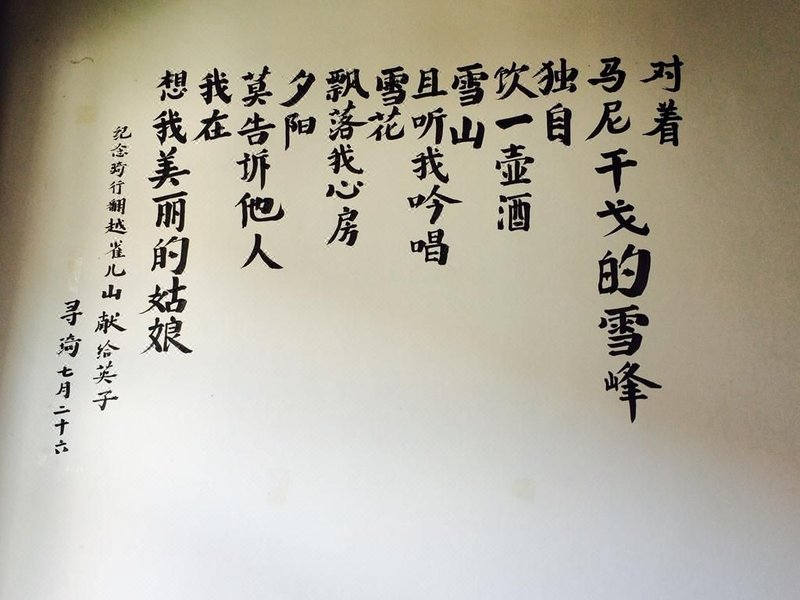 对着
马尼干戈的雪峰
独自
饮一壶酒
雪山
且听我吟唱
雪花
飘落我心房
夕阳
莫告诉他人
我在
想我美丽的姑娘
纪念骑行翻越雀儿山献给英子
寻琦七月二十六